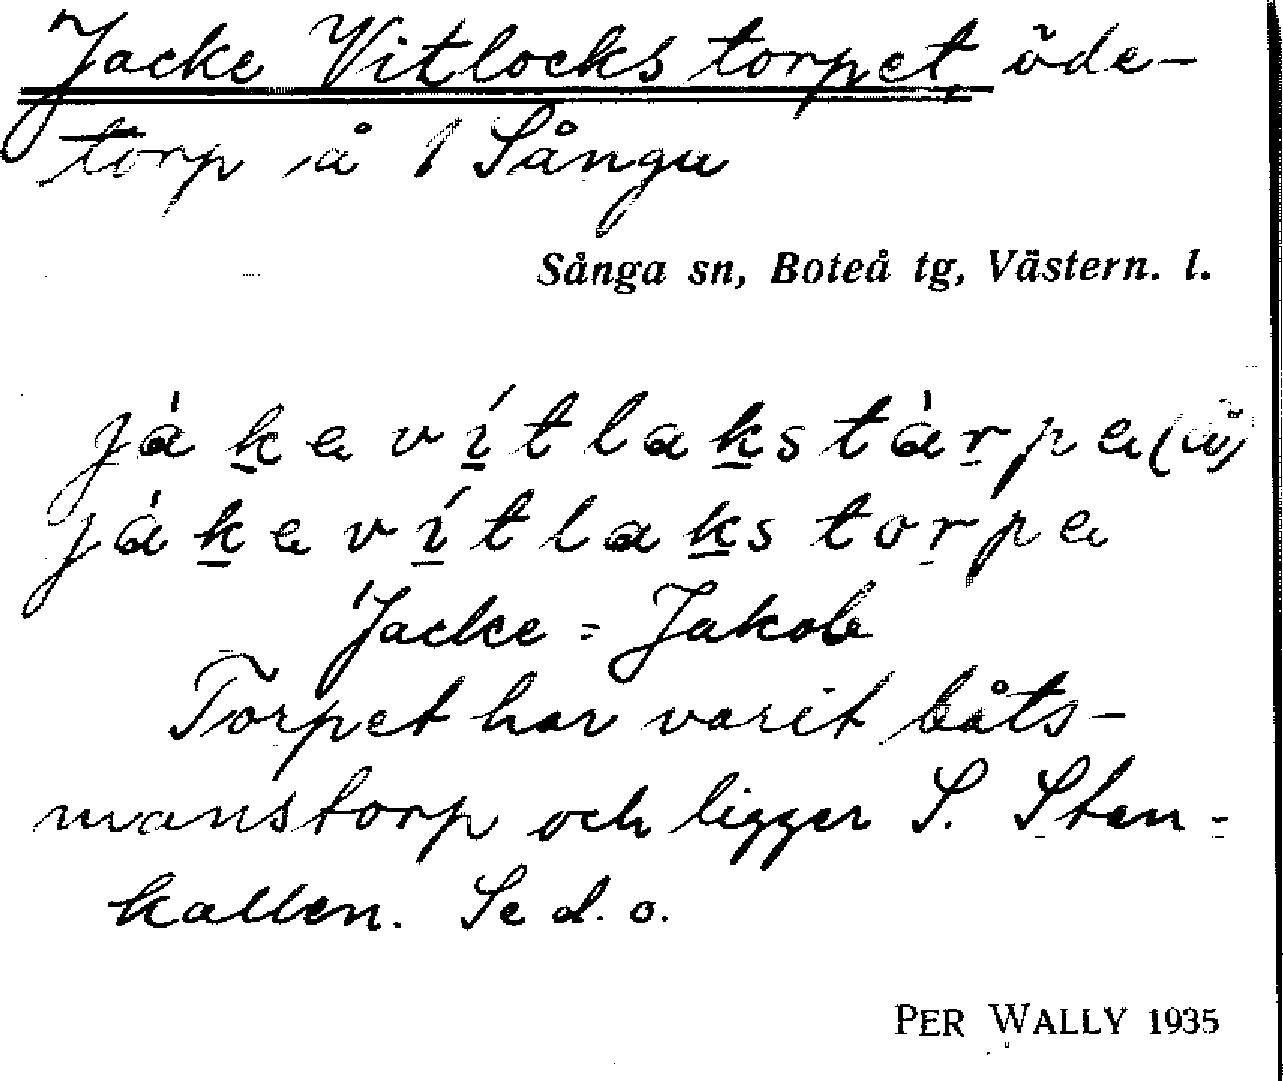 Jacke Vitlocks torpet öde-
torp å 1 Sånga
Sånga sn, Boteå tg, Västern. l.
jàkevítlakstàrpa (äv)
jàkevítlakstorpa
Jacke = Jakob
Torpet har varit båts-
manstorp och ligger S. Sten-
kallen. Se d. o.
PER WALLY 1935